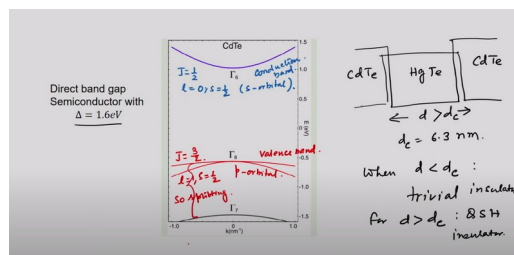 Direct band gap
Semiconductor with
Δ = 1.6eV
CdTe
1.5
J = 1/2
Γ6
conduction
band
1.0
l = 0, s = 1/2 (s-orbital).
0.5
0.0
E (eV)
J = 3/2
Γ8
valence band.
-0.5
l = 1, s = 1/2
p-orbital.
-1.0
SO splitting
Γ7
-1.5
-1.0
0.0
1.0
k(nm⁻¹)
CdTe
HgTe
CdTe
d > dc
dc = 6.3 nm.
When d < dc :
trivial insulat
for d > dc : QSH
insulator.